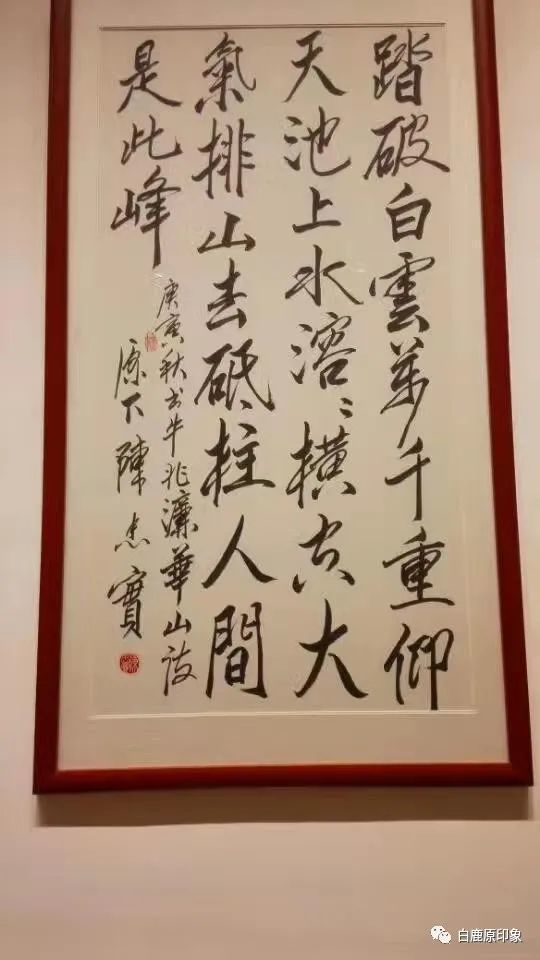 踏破白雲萬千重仰
天池上水溶〻横空大
氣排山去砥柱人間
是此峰
庚寅秋书牛兆濂華山诗
原下陳忠實
白鹿原印象